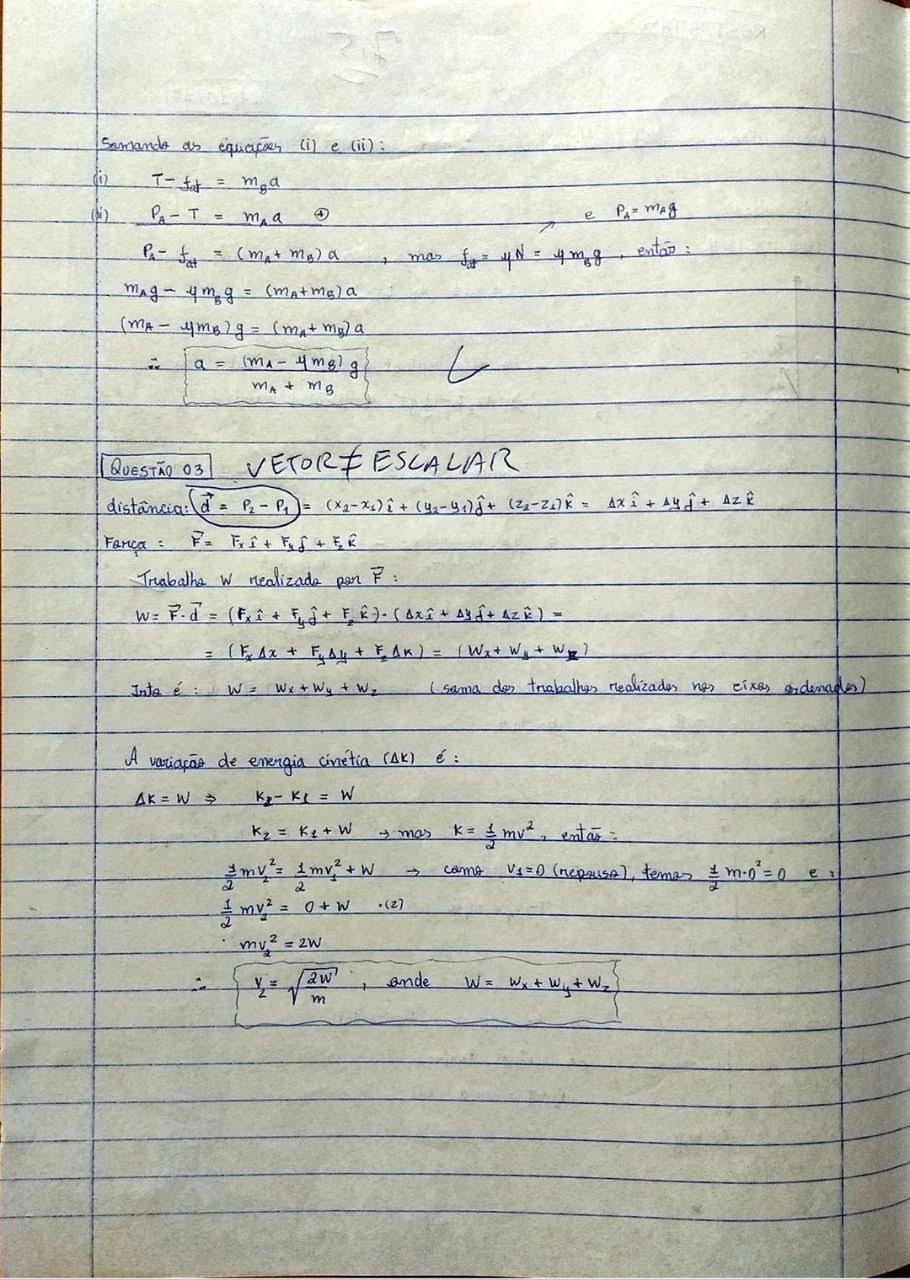 Somando as equações (i) e (ii):
(i) T - fat = mBa
(ii) PA - T = mAa ⊕ e PA = mAg
PA - fat = (mA + mB)a , mas fat = μN = μmBg, então:
mAg - μmBg = (mA+mB)a
(mA - μmB)g = (mA+mB)a
∴ a = (mA - μmB)g / mA + mB
QUESTÃO 03 VETOR ≠ ESCALAR
distância: d⃗ = P2 - P1 = (x2-x1)î + (y2-y1)ĵ + (z2-z1)k̂ = Δxî + Δyĵ + Δzk̂
Força: F⃗ = Fxî + Fyĵ + Fzk̂
Trabalho W realizado por F⃗:
W = F⃗·d⃗ = (Fxî + Fyĵ + Fzk̂)·(Δxî + Δyĵ + Δzk̂) =
= (FxΔx + FyΔy + FzΔk) = (Wx + Wy + Wz)
Isto é: W = Wx + Wy + Wz (soma dos trabalhos realizados nos eixos ordenados)
A variação de energia cinétia (ΔK) é:
ΔK = W ⇒ K2 - K1 = W
K2 = K1 + W → mas K = 1/2 mv², então:
1/2 mv2² = 1/2 mv1² + W → como v1=0 (repouso), temos 1/2 m·0² = 0 e:
1/2 mv2² = 0 + W ·(2)
mv2² = 2W
∴ v2 = √(2W/m) , onde W = Wx + Wy + Wz